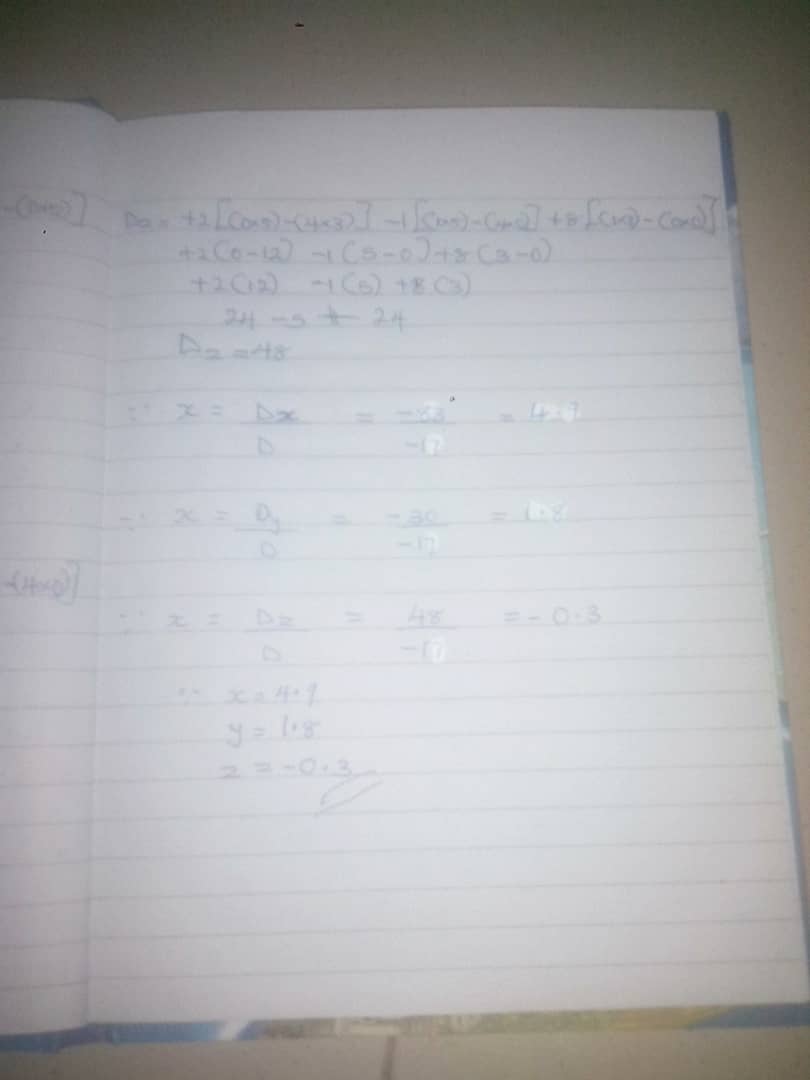 -(0×5)]
D2 = +2[(0×5)-(4×3)] -1[(1×5)-(4×0)] +8[(1×3)-(0×0)]
+2(0-12) -1(5-0)+8(3-0)
+2(12) -1(5) +8(3)
24 -5 + 24
Dz = 48
∵ x = Dx/D = -83/-17 = 4.9
∵ x = Dy/D = -30/-17 = 1.8
-(4×0)]
∵ x = Dz/D = 48/-17 = -0.3
∵ x = 4.9
y = 1.8
z = -0.3